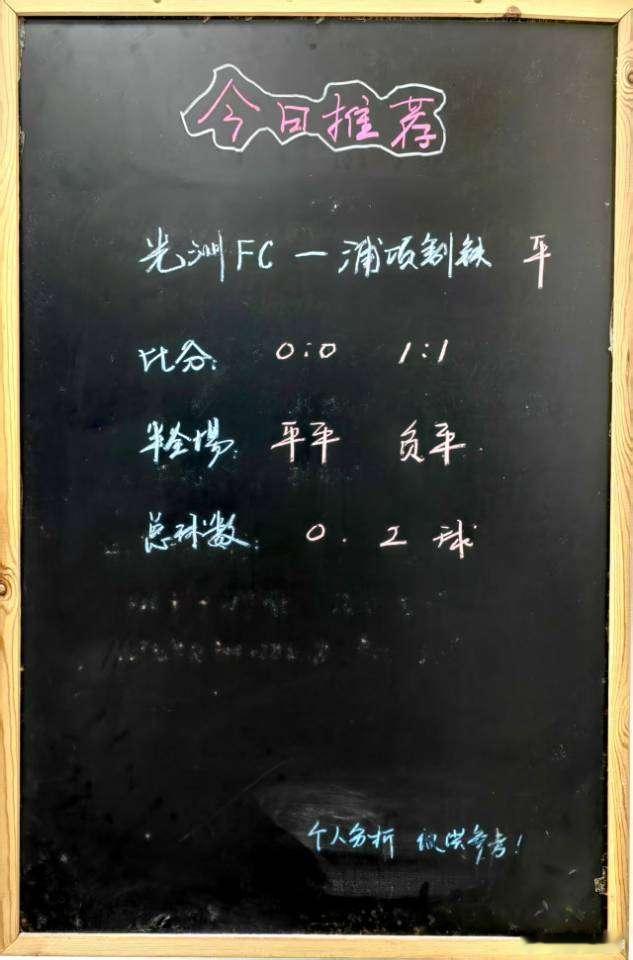 今日推荐
光洲FC — 浦项制铁 平
比分: 0:0 1:1
半全場: 平平 负平
总球数: 0. 2 球
个人分析 仅供参考!